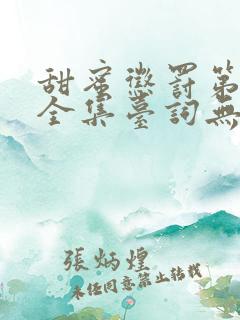 甜蜜懲罰第
全集臺詞無
張炳煌
未經同意禁止轉載